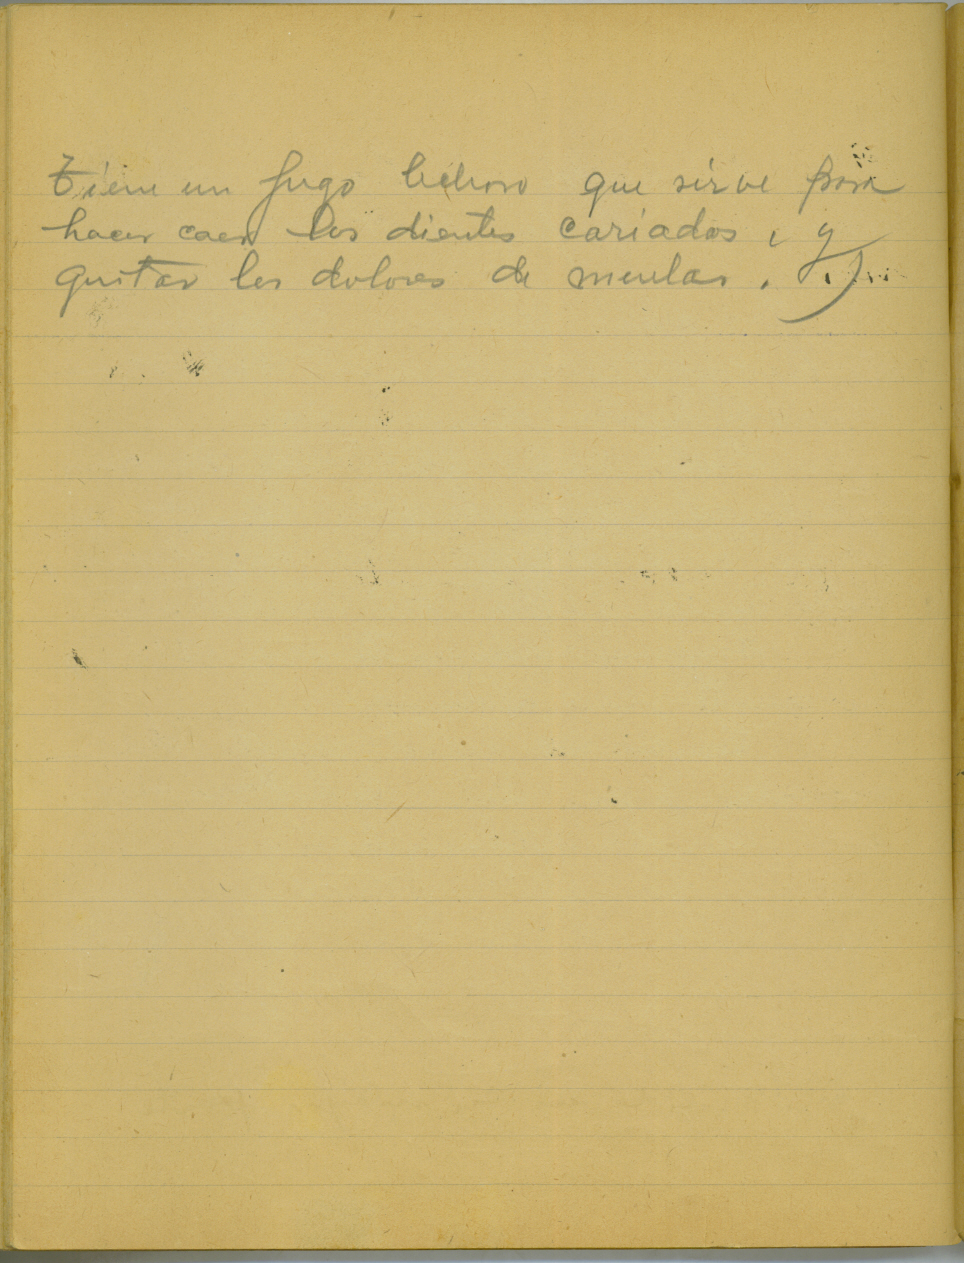 Tiene un jugo lechoso que sirve para
hacer caer los dientes cariados, y
quitar los dolores de muelas.)